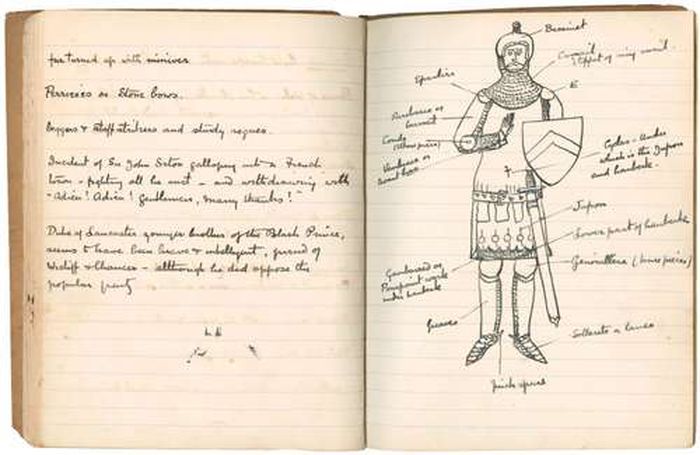 fur turned up with miniver
Perrieries or Stone bows.
beggars & staff strikers and sturdy rogues.
Incident of Sir John Seton galloping into a French
town - fighting all he met - and withdrawing with
"Adieu! Adieu! Gentlemen, many thanks!"
Duke of Lancaster younger brother of the Black Prince,
seems to have been brave & intelligent, friend of
Wicliff & Chaucer - although he did oppose the
popular party
Bassinet
Camail
Effect of ring mail.
Epauliere
E
Cyclas - under
which is the Jupon
and hauberk.
Jupon
Lower part of hauberk
Genouilliere (knee pieces)
Gamboised or
Pourpoint work
under hauberk
Greaves
Sollerets or lames
Prick spurs